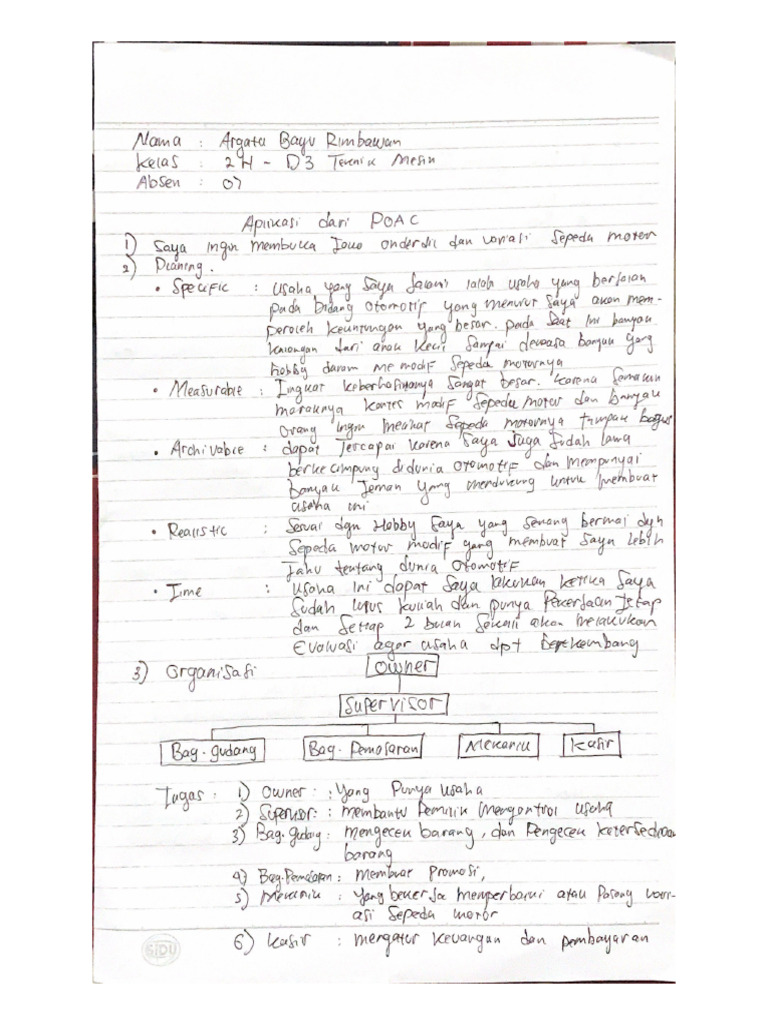 Nama : Argata Bayu Rimbawan
Kelas : 2H - D3 Teknik Mesin
Absen : 07
Aplikasi dari POAC
1) Saya ingin membuka toko onderdil dan variasi sepeda motor
2) Planing.
• Specific : usaha yang saya jalani ialah usaha yang berjalan
pada bidang otomotif yang menurut saya akan mem-
peroleh keuntungan yang besar. pada saat ini banyak
kalangan dari anak kecil sampai dewasa banyak yang
hobby dalam me modif sepeda motornya
• Measurable : Tingkat keberhasilannya sangat besar. karena semakin
maraknya kontes modif sepeda motor dan banyak
orang ingin melihat sepeda motornya tampak bagus
• Archivable : dapat Tercapai karena saya juga sudah lama
berkecimpung didunia otomotif dan mempunyai
banyak teman yang mendukung untuk membuat
usaha ini
• Realistic : Sesuai dgn Hobby saya yang senang bermai dgn
sepeda motor modif yang membuat saya lebih
tahu tentang dunia otomotif
• Time : usaha ini dapat saya lakukan ketika saya
sudah lulus kuliah dan punya pekerjaan tetap
dan setiap 2 bulan sekali akan melakukan
Evaluasi agar usaha dpt berkembang
3) Organisasi
Owner
Supervisor
Bag. gudang Bag. Pemasaran Mekanik Kasir
Tugas : 1) Owner : yang Punya usaha
2) Supervisor : membantu Pemilik mengontrol usaha
3) Bag. Gudang : mengecek barang, dan Pengecek ketersediaan
barang
4) Bag. Pemasaran : membuat Promosi,
5) Mekanik : yang bekerja memperbaiki atau Pasang vari-
asi sepeda motor
6) Kasir : mengatur keuangan dan pembayaran
SIDU